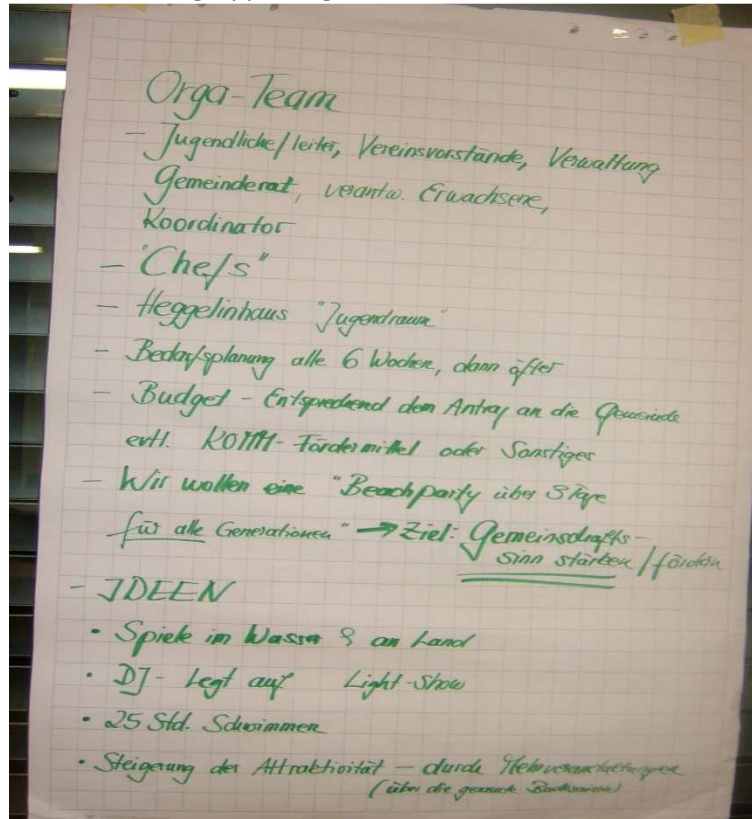 Orga-Team
- Jugendliche/leiter, Vereinsvorstände, Verwaltung
Gemeinderat, verantw. Erwachsene,
Koordinator
- "Chefs"
- Heggelinhaus "Jugendraum"
- Bedarfsplanung alle 6 Wochen, dann öfter
- Budget - Entsprechend dem Antrag an die Gemeinde
evtl. KOMM-Fördermittel oder Sonstiges
- Wir wollen eine "Beachparty über 3 Tage
für alle Generationen" → Ziel: Gemeinschafts-
sinn stärken / fördern
- IDEEN
• Spiele im Wasser & an Land
• DJ - Legt auf Light-Show
• 25 Std. Schwimmen
• Steigerung der Attraktivität - durch
(über die gesamte